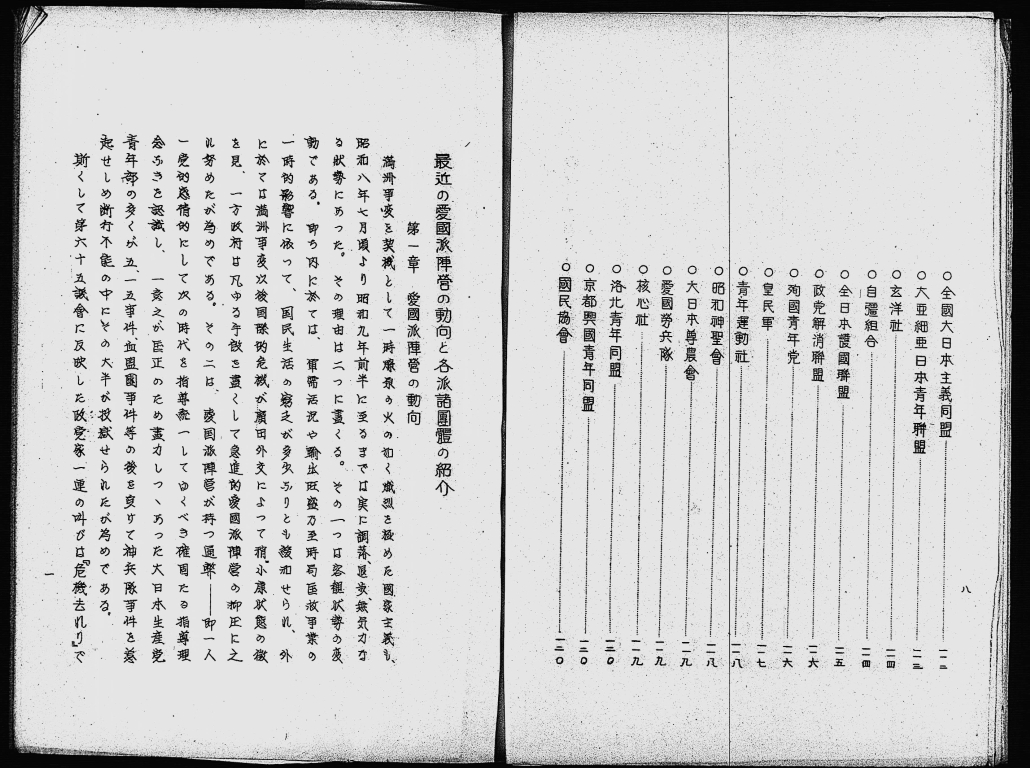 ○全國大日本主義同盟……一二二
○大亜細亜日本青年聯盟……一二三
○玄洋社……一二四
○自彊組合……一二四
○全日本護國聯盟……一二五
○政党解消聯盟……一二六
○殉國青年党……一二六
○皇民軍……一二七
○青年運動社……一二八
○昭和神聖會……一二八
○大日本尊農會……一二九
○愛國勞兵隊……一二九
○核心社……一二九
○洛北青年同盟……一三〇
○京都興國青年同盟……一三〇
○國民協會……一三〇
八
最近の愛國派陣營の動向と各派諸團體の紹介
第一章　愛國派陣營の動向
滿洲事変を契機として一時燎原の火の如く熾烈を極めた國家主義も、
昭和八年七月頃より昭和九年前半に至るまでは実に凋落、退嬰、無気力な
る狀勢にあった。その理由は二つに盡くる。その一つは客観狀勢の変
動である。即ち内に於ては、軍需活況や輸出旺盛乃至時局匡救事業の
一時的影響に依って、國民生活の窮乏が多少なりとも緩和せられ、外
に於ては滿洲事変以後國際的危機が廣田外交によって稍小康狀態の徴
を見、一方政府は凡ゆる手段を盡くして急進的愛國派陣營の抑圧に之
れ努めたが為めである。その二は、愛国派陣營が持つ通弊――即一人
一党的感情的にして次の時代を指導統一してゆくべき確固たる指導理
念なきを認識し、一意之が匡正のため盡力しつゝあった大日本生産党
青年部の多くが五、一五事件、血盟團事件等の後を受けて神兵隊事件を惹
起せしめ断行不能の中にその大半が投獄せられたが為めである。
斯くして第六十五議會に反映した政党家一連の叫びは『危機去れり』で
一